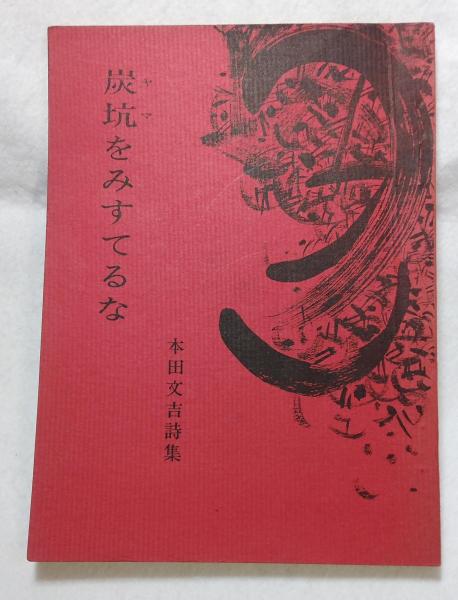 炭坑をみすてるな
ヤマ
本田文吉詩集